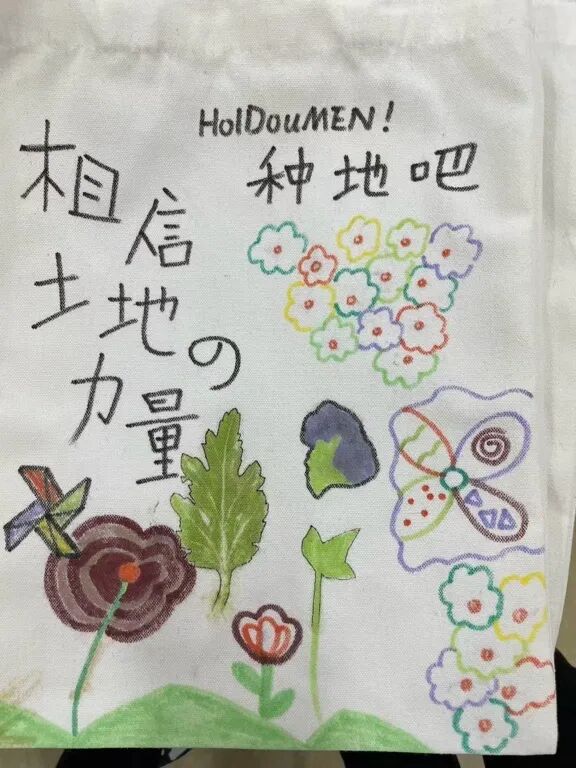 HolDouMEN!
种地吧
相信
土地の
力量